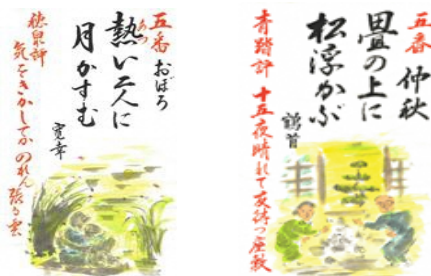 五番 おぼろ
熱い二人に
あつ
月かすむ
寛幸
穂泉評
気をきかしてか のれん 張る雲
五番 仲秋
畳の上に
松浮かぶ
鶴首
青踏評 十五夜晴れて友待つ座敷